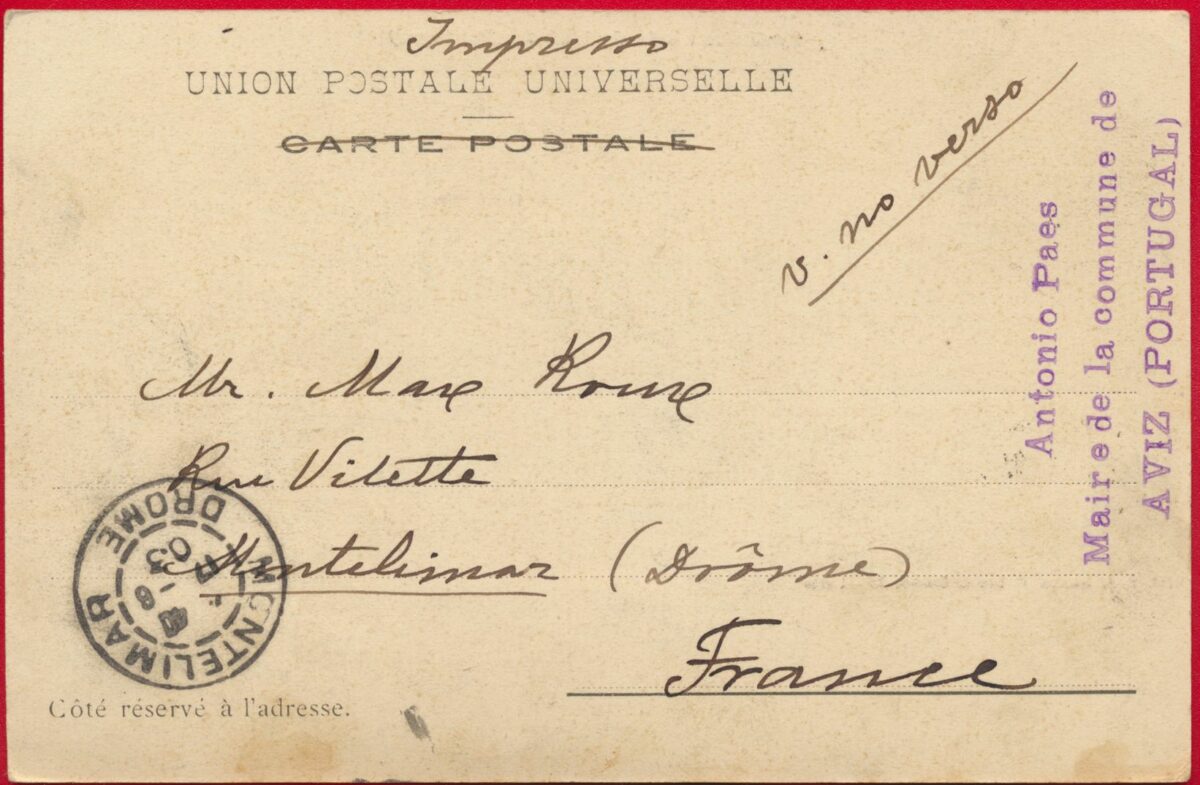 Impresso
UNION POSTALE UNIVERSELLE
CARTE POSTALE
v. no verso
Antonio Paes
Maire de la commune de
AVIZ (PORTUGAL)
Mr. Max Roux
Rue Vilette
Montelimar (Drôme)
France
MONTELIMAR
DROME
03
Côté réservé à l'adresse.